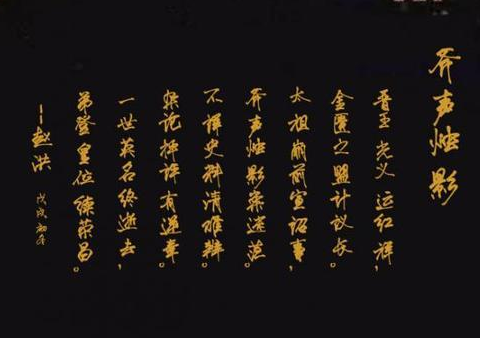 斧声烛影
晋王光义运红祥，
金匮之盟计议长。
太祖前宣诏事，
斧声烛影案迷茫。
不详史料清难辩。
论抨评有逆章。
一世英名终逝去，
弟登皇位续荣昌。
——赵洪 戊戌初冬